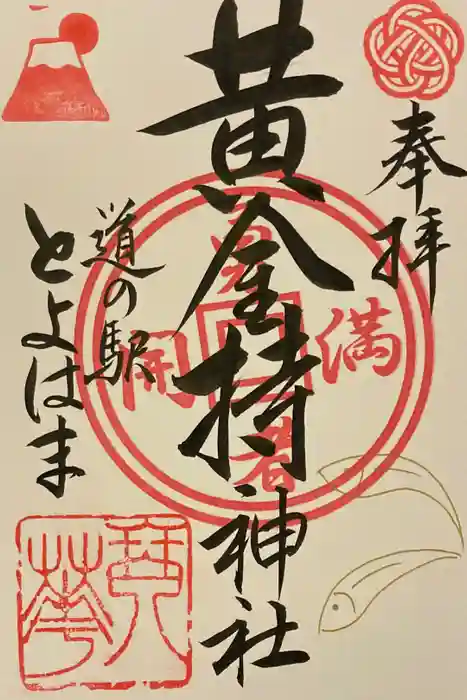 奉拝
黄金持神社
道の駅
とよはま
勇者
満開